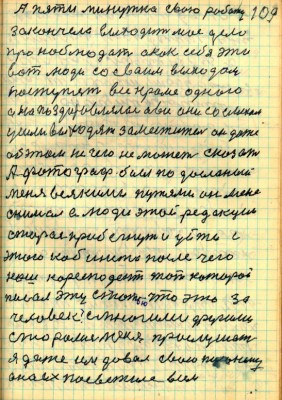 А пяти минутка свою работу 109
закончила выходит мое дело
пронаблюдать скок себя эти
вот люди со своим выходом
поступят все кроме одного
она поздоровлялась а вот они со словам
ушли выходят заместител он даже
об этом не чего не может сказат
А фотограф был по досланой
меня всякими путями он мене
снимал а люди этой редакции
старая прибегнут и уйти с
этого кабинета после чего
наш кореспадент тот которой
писал эту статю что это за
человек? с многими другими
старалися меня прослушат
я даже им довал свою
она их посветила всем